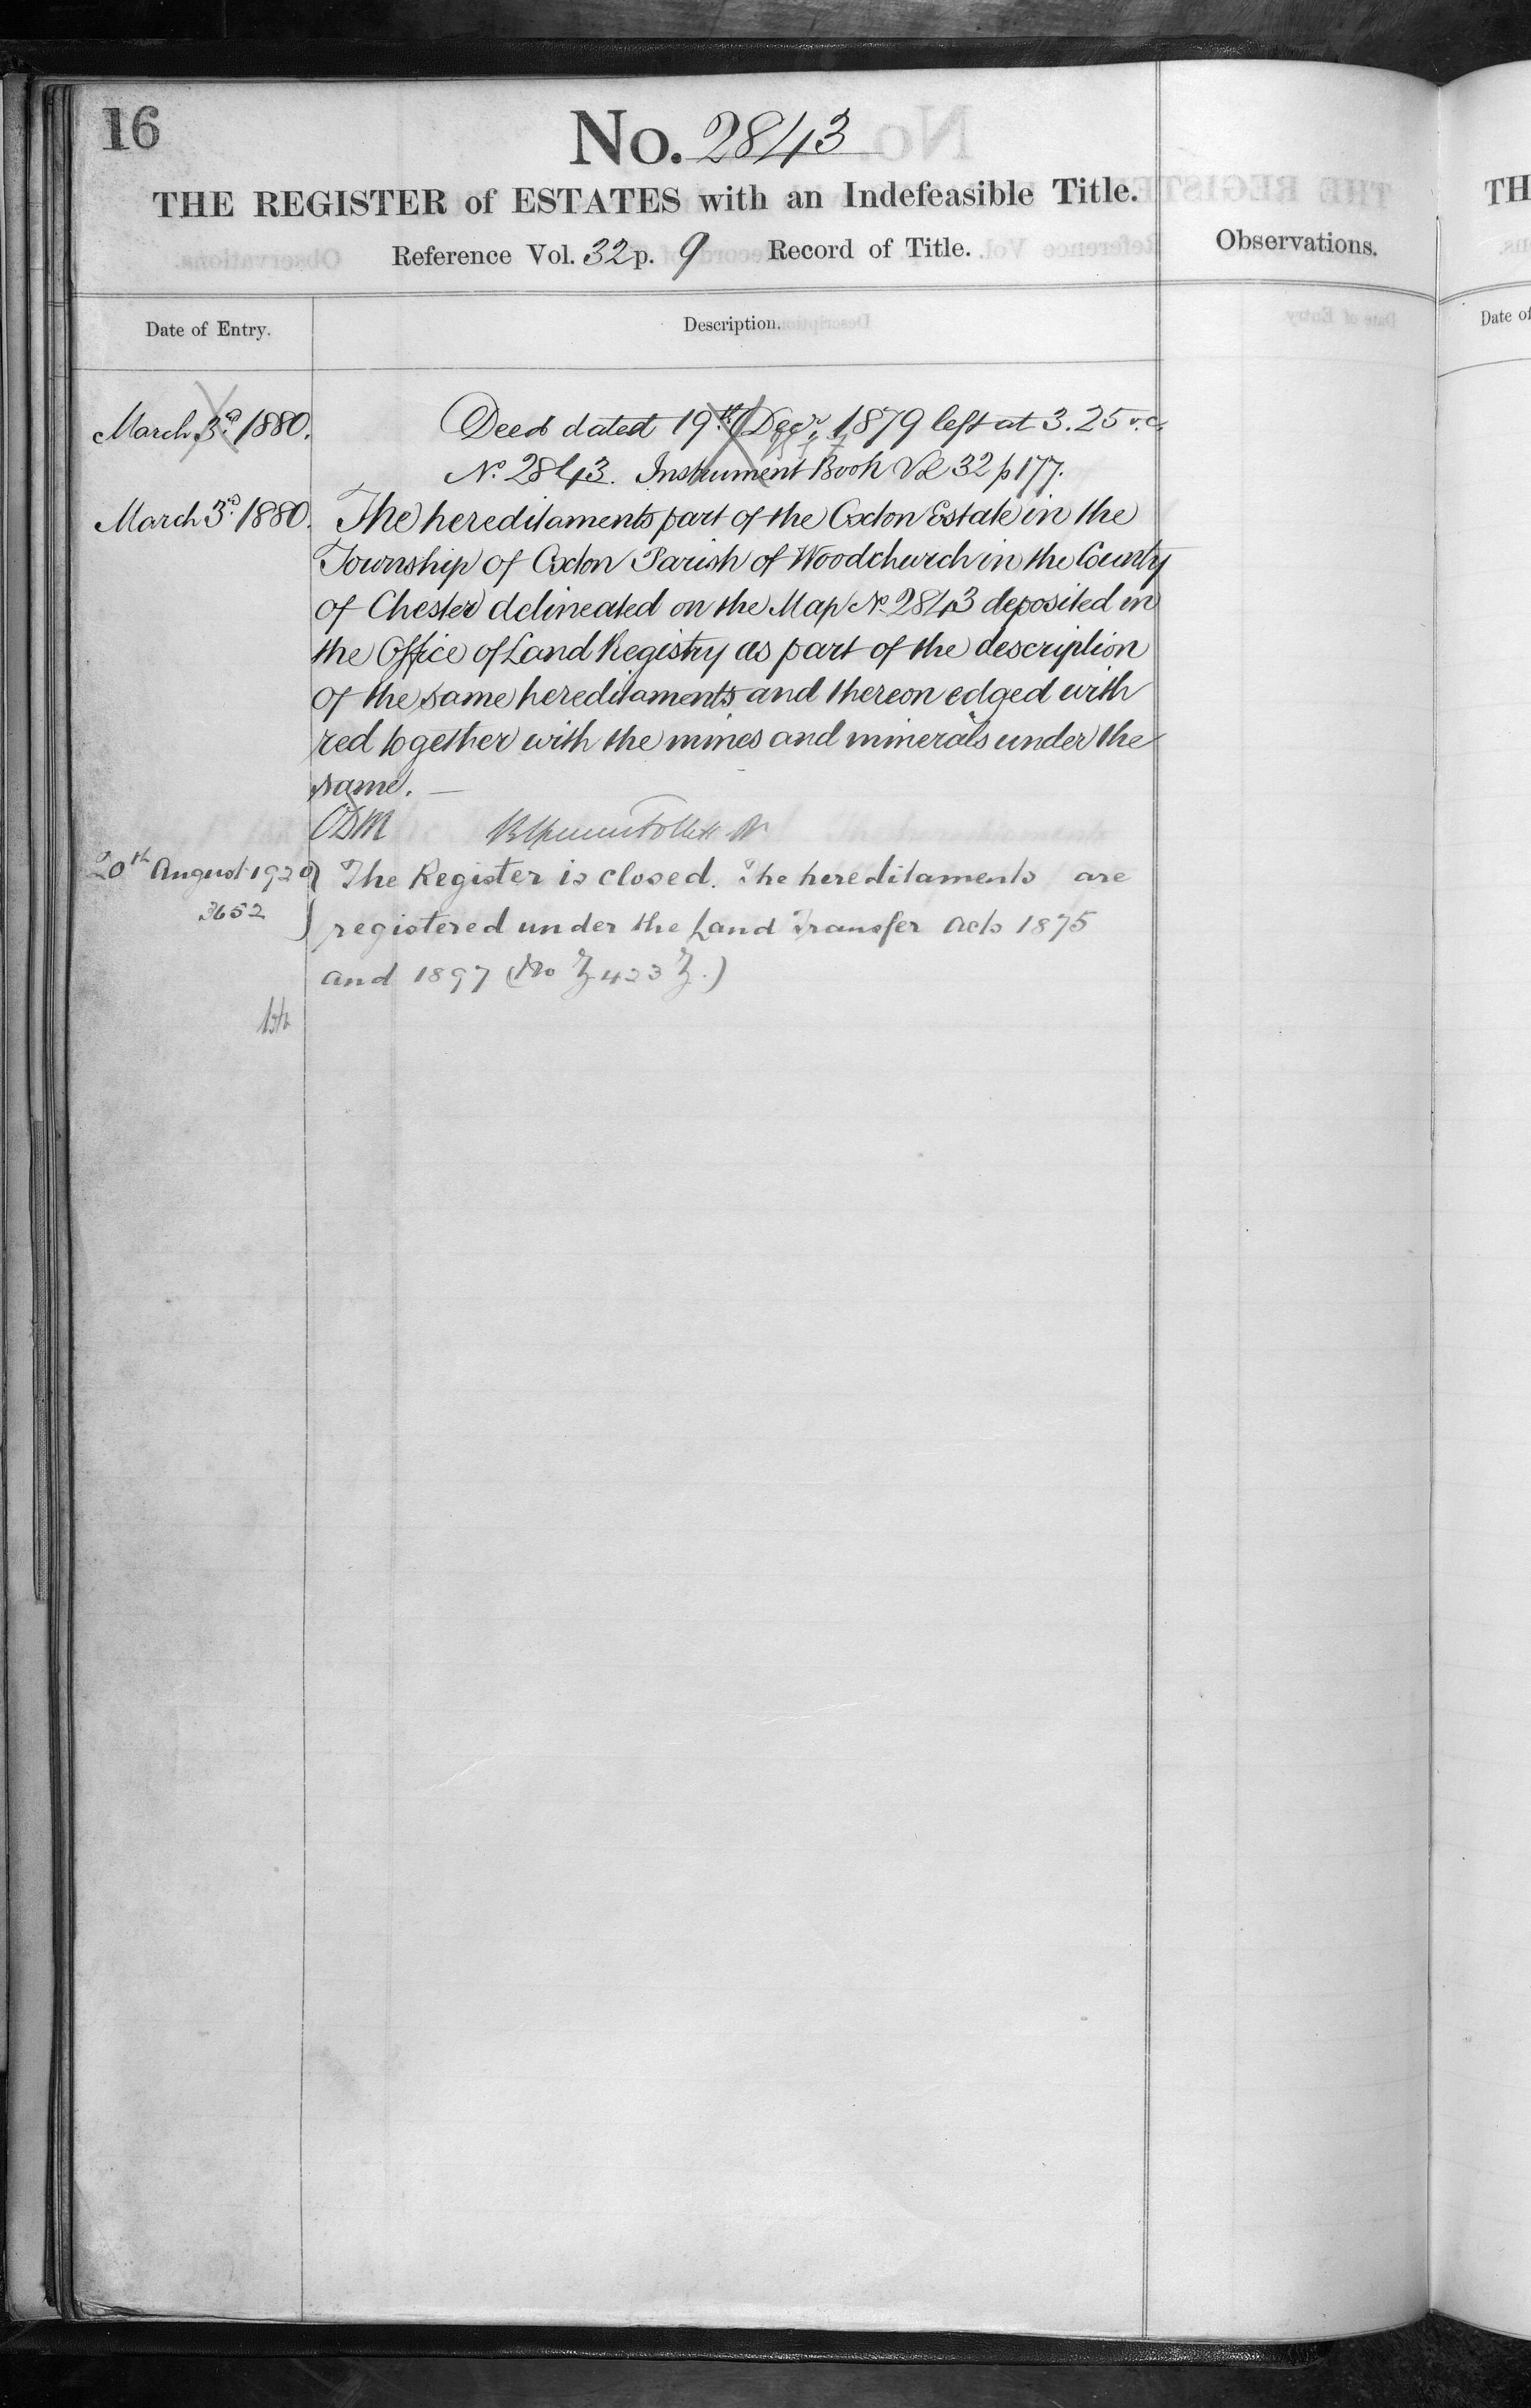 16
No. 2843
THE REGISTER of ESTATES with an Indefeasible Title.
Reference Vol. 32 p. 9 Record of Title.
Observations.
Date of Entry.
Description.
March 3rd 1880.
Deed dated 19th Decr. 1879 left at 3.25
No. 2843. Instrument Book Vol 32 p 177.
March 3rd 1880.
The hereditaments part of the Oxton Estate in the
Township of Oxton Parish of Woodchurch in the County
of Chester delineated on the Map No. 2843 deposited in
the Office of Land Registry as part of the description
of the same hereditaments and thereon edged with
red together with the mines and minerals under the
same. —
20th August 1920
3652
The Register is closed. The hereditaments are
registered under the Land Transfer Acts 1875
and 1897 (No Z 423 Z.)
TH
Date of